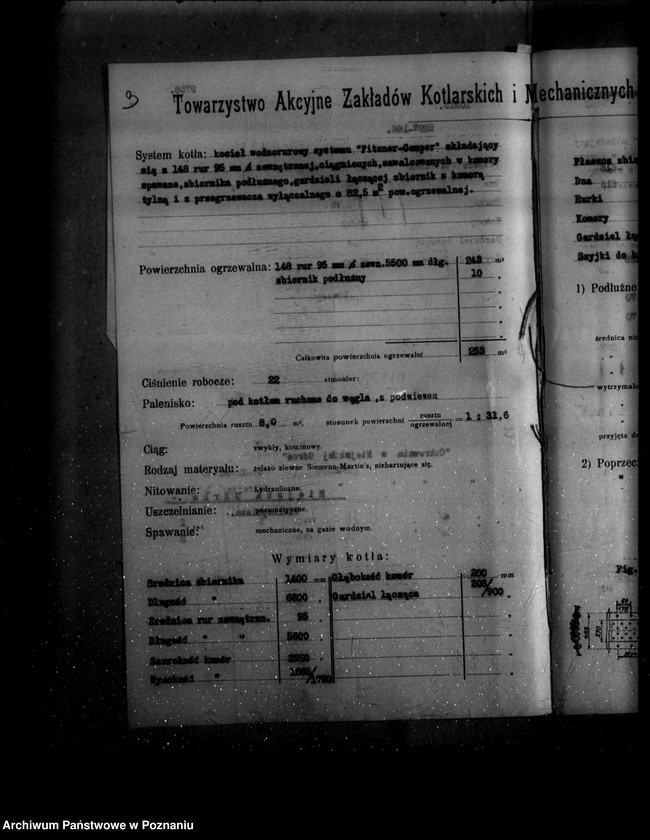 3
Towarzystwo Akcyjne Zakładów Kotlarskich i Mechanicznych
System kotła: kocieł wodnorurowy systemu "Fitzner-Gamper" składający
się z 148 rur 95 mm ∮ zewnętrznej, ciągnionych, zawalcowanych w komory
spawane, zbiornika podłużnego, gardzieli łączącej zbiornik z komorą
tylną i z przegrzewacza wyłączalnego o 82,5 m² pow.ogrzewalnej.
Powierzchnia ogrzewalna: 148 rur 95 mm ∮ zewn. 5500 mm dłg. 243 m²
zbiornik podłużny 10 "
Całkowita powierzchnia ogrzewalni 253 m²
Ciśnienie robocze: 22 atmosfer:
Palenisko: pod kotłem ruchome do węgla, z podwiewem
Powierzchnia rusztu 8,0 m², stosunek powierzchni rusztu / ogrzewalnej = 1 : 31,6
Ciąg: zwykły, kominowy.
Rodzaj materyału: żelazo zlewne Siemens-Martin'a, niehartujące się.
Nitowanie: hydrauliczne.
Uszczelnianie: pneumatyczne.
Spawanie: mechaniczne, na gazie wodnym.
Wymiary kotła:
Średnica zbiornika 1400 mm Głębokość komór 200 mm
Długość " 6800 " Gardziel łącząca 208/900 "
Średnica rur zewnętrzn. 95 "
Długość " " 5500 "
Szerokość komór
Wysokość "
Płaszcz
Dna
Rurki
Komory
Gardziel
Szyjki do
1) Podłużne
średnica
przyjęta
2) Poprzec
Fig.
Archiwum Państwowe w Poznaniu